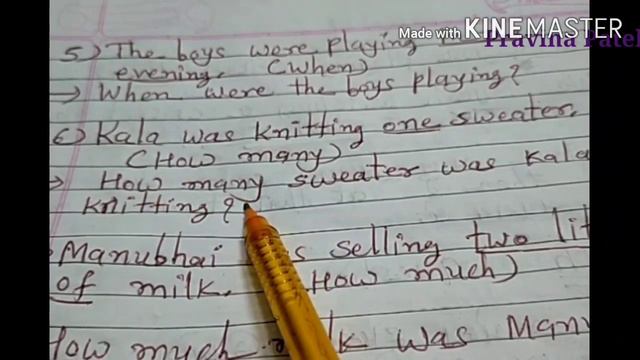 Made with KINEMASTER
Pravina Patel
5) The boys were playing
evening. (When)
→ When were the boys playing?
6) Kala was knitting one sweater.
(How many)
→ How many sweater was Kala
knitting?
Manubhai selling two lit
of milk. (How much)
How much milk was Manu